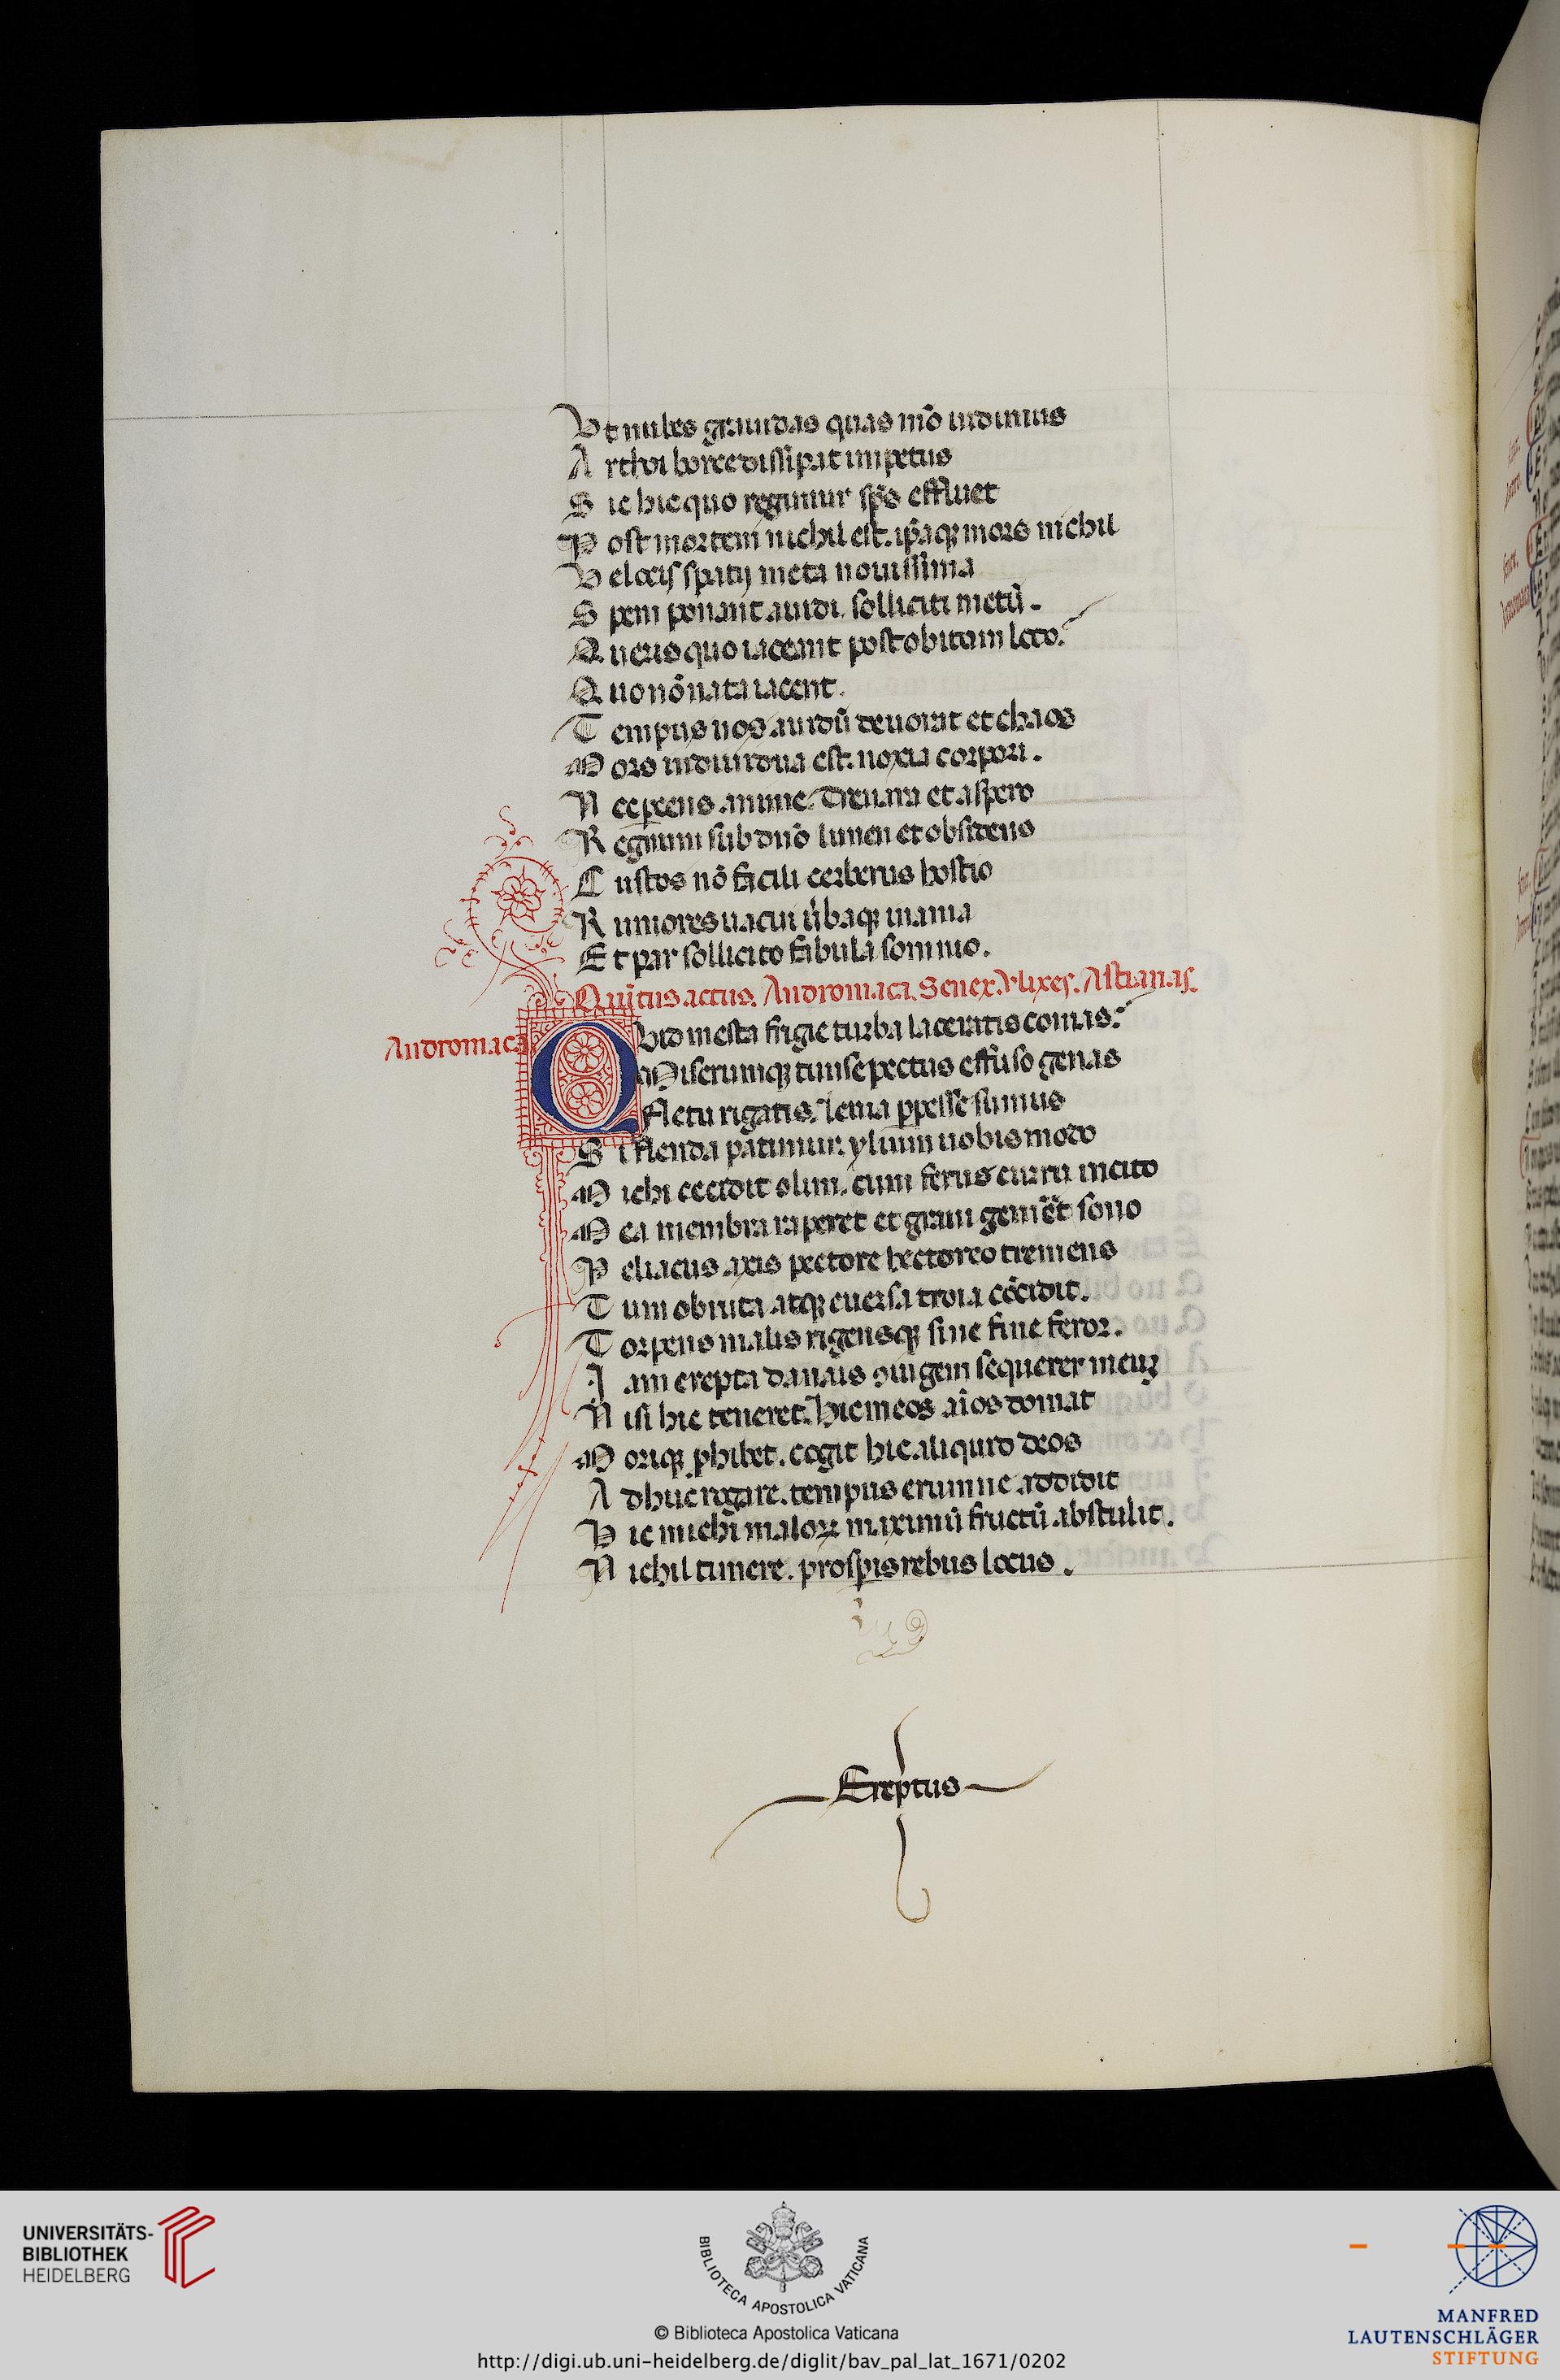 Vt nubes grauidas quas mō uidimus
Arthoi boree dissipat impetus
Sic hic quo regimur sp̄s effluet
Post mortem nichil est. ip̄aqꝫ mors nichil
Velocis spatij meta nouissima
Spem ponant auidi. solliciti metū.
Queris quo iaceant post obitum loco.
Quo nō nata iacent.
Tempus nos auidū deuorat et chaos
Mors indiuidua est. noxia corpori.
Nec ꝑcens anime. Trenara et aspero
Regnum sub dn̄o limen et obsidens
Custos nō facili cerberus hostio
Rumores uacui ūbaqꝫ inania
Et par sollicito fabula somnio.
Quītus actus. Andromaca. Senex. Vlixes. Astianas.
Andromaca
QVid mesta frigie turba laceratis comas.
Miserumqꝫ tunse pectus effuso genas
Fletu rigatis. leuia ꝑpesse sumus
Si flenda patimur. ylium uobis modo
Michi cecidit olim. cum ferus curru incito
Mea membra raperet et graui gemēt sono
Peliacus axis pectore hectoreo tremens
Tum obruta atqꝫ euersa troia cōcidit.
Torpens malis rigensqꝫ sine fine feror.
Iam erepta danais ꝯiugem sequerer meuꝫ
Nisi hic teneret. Hic meos aīos domat
Moriqꝫ ꝓhibet. cogit hic aliquid deos
Adhuc rogare. tempus erumne addidit
Hic michi maloꝝ maximū fructū abstulit.
Nichil timere. prosꝑis rebus locus.
Ereptus
UNIVERSITÄTS-
BIBLIOTHEK
HEIDELBERG
BIBLIOTECA APOSTOLICA VATICANA
© Biblioteca Apostolica Vaticana
http://digi.ub.uni-heidelberg.de/diglit/bav_pal_lat_1671/0202
MANFRED
LAUTENSCHLÄGER
STIFTUNG